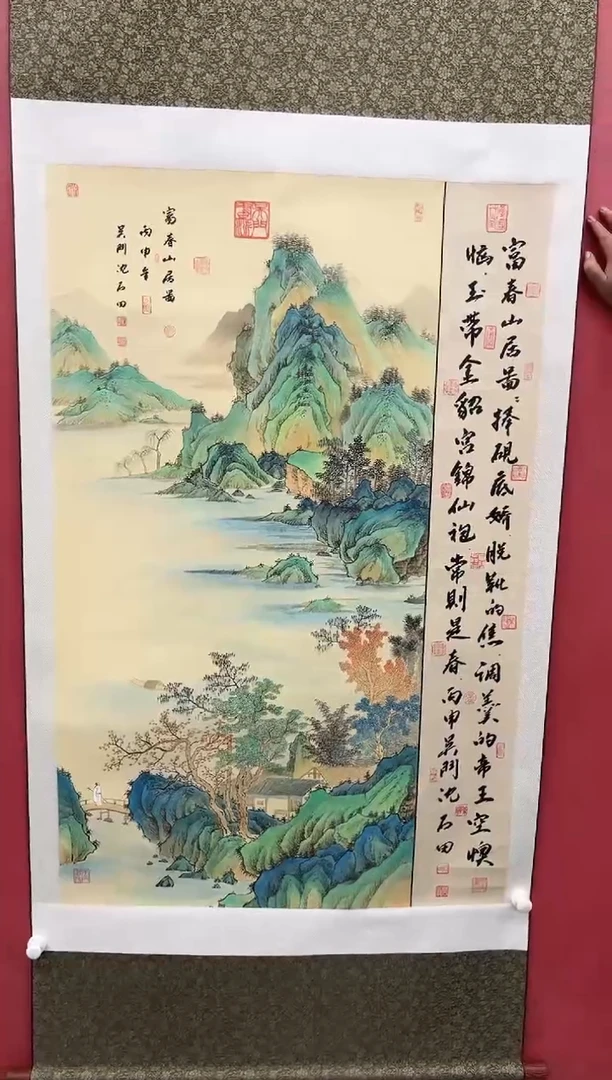 富春山居圖：捧硯底嬌脫靴的焦調羹的帝王空懊
惱玉帶金貂宮錦仙袍常則是春丙申吳門沈石田
富春山居圖
丙申年
吳門沈石田